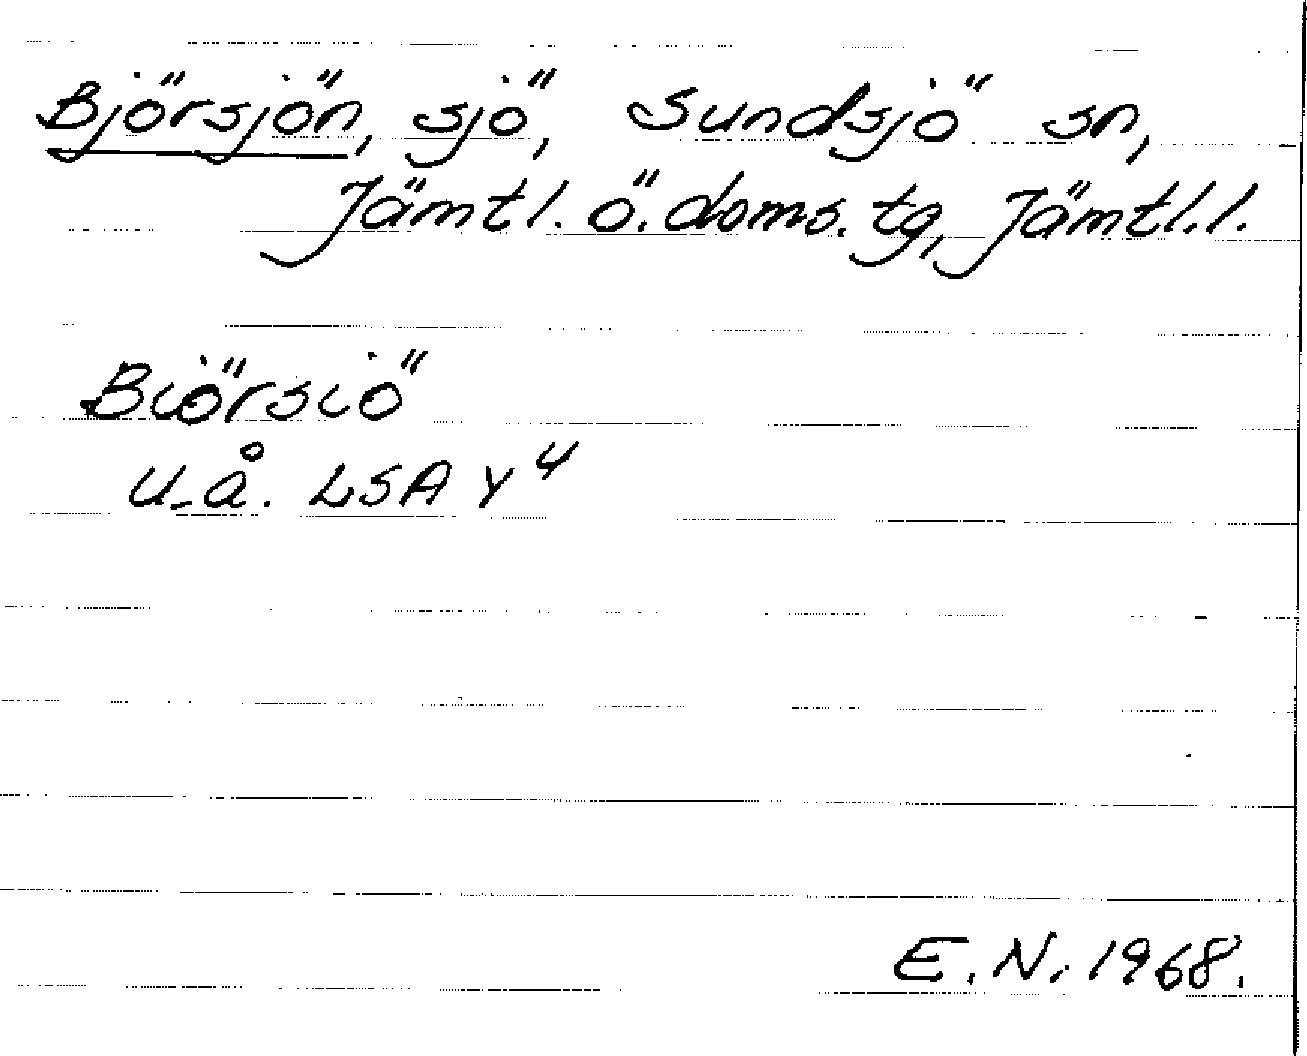 Björsjön, sjö, Sundsjö sn,
Jämtl. ö. doms. tg, Jämtl. l.
Biörsiö
u. å. LSA Y 4
E. N. 1968.